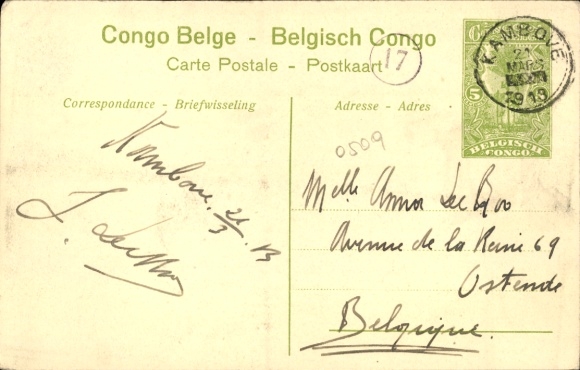 Congo Belge - Belgisch Congo
Carte Postale - Postkaart
Correspondance - Briefwisseling
Adresse - Adres
17
KAMBOVE
21
MARS
1913
5
BELGISCH
CONGO
0509
Kambove. 21/3.13
J.
Melle Anna
Avenue de la Reine 69
Ostende
Belgique.